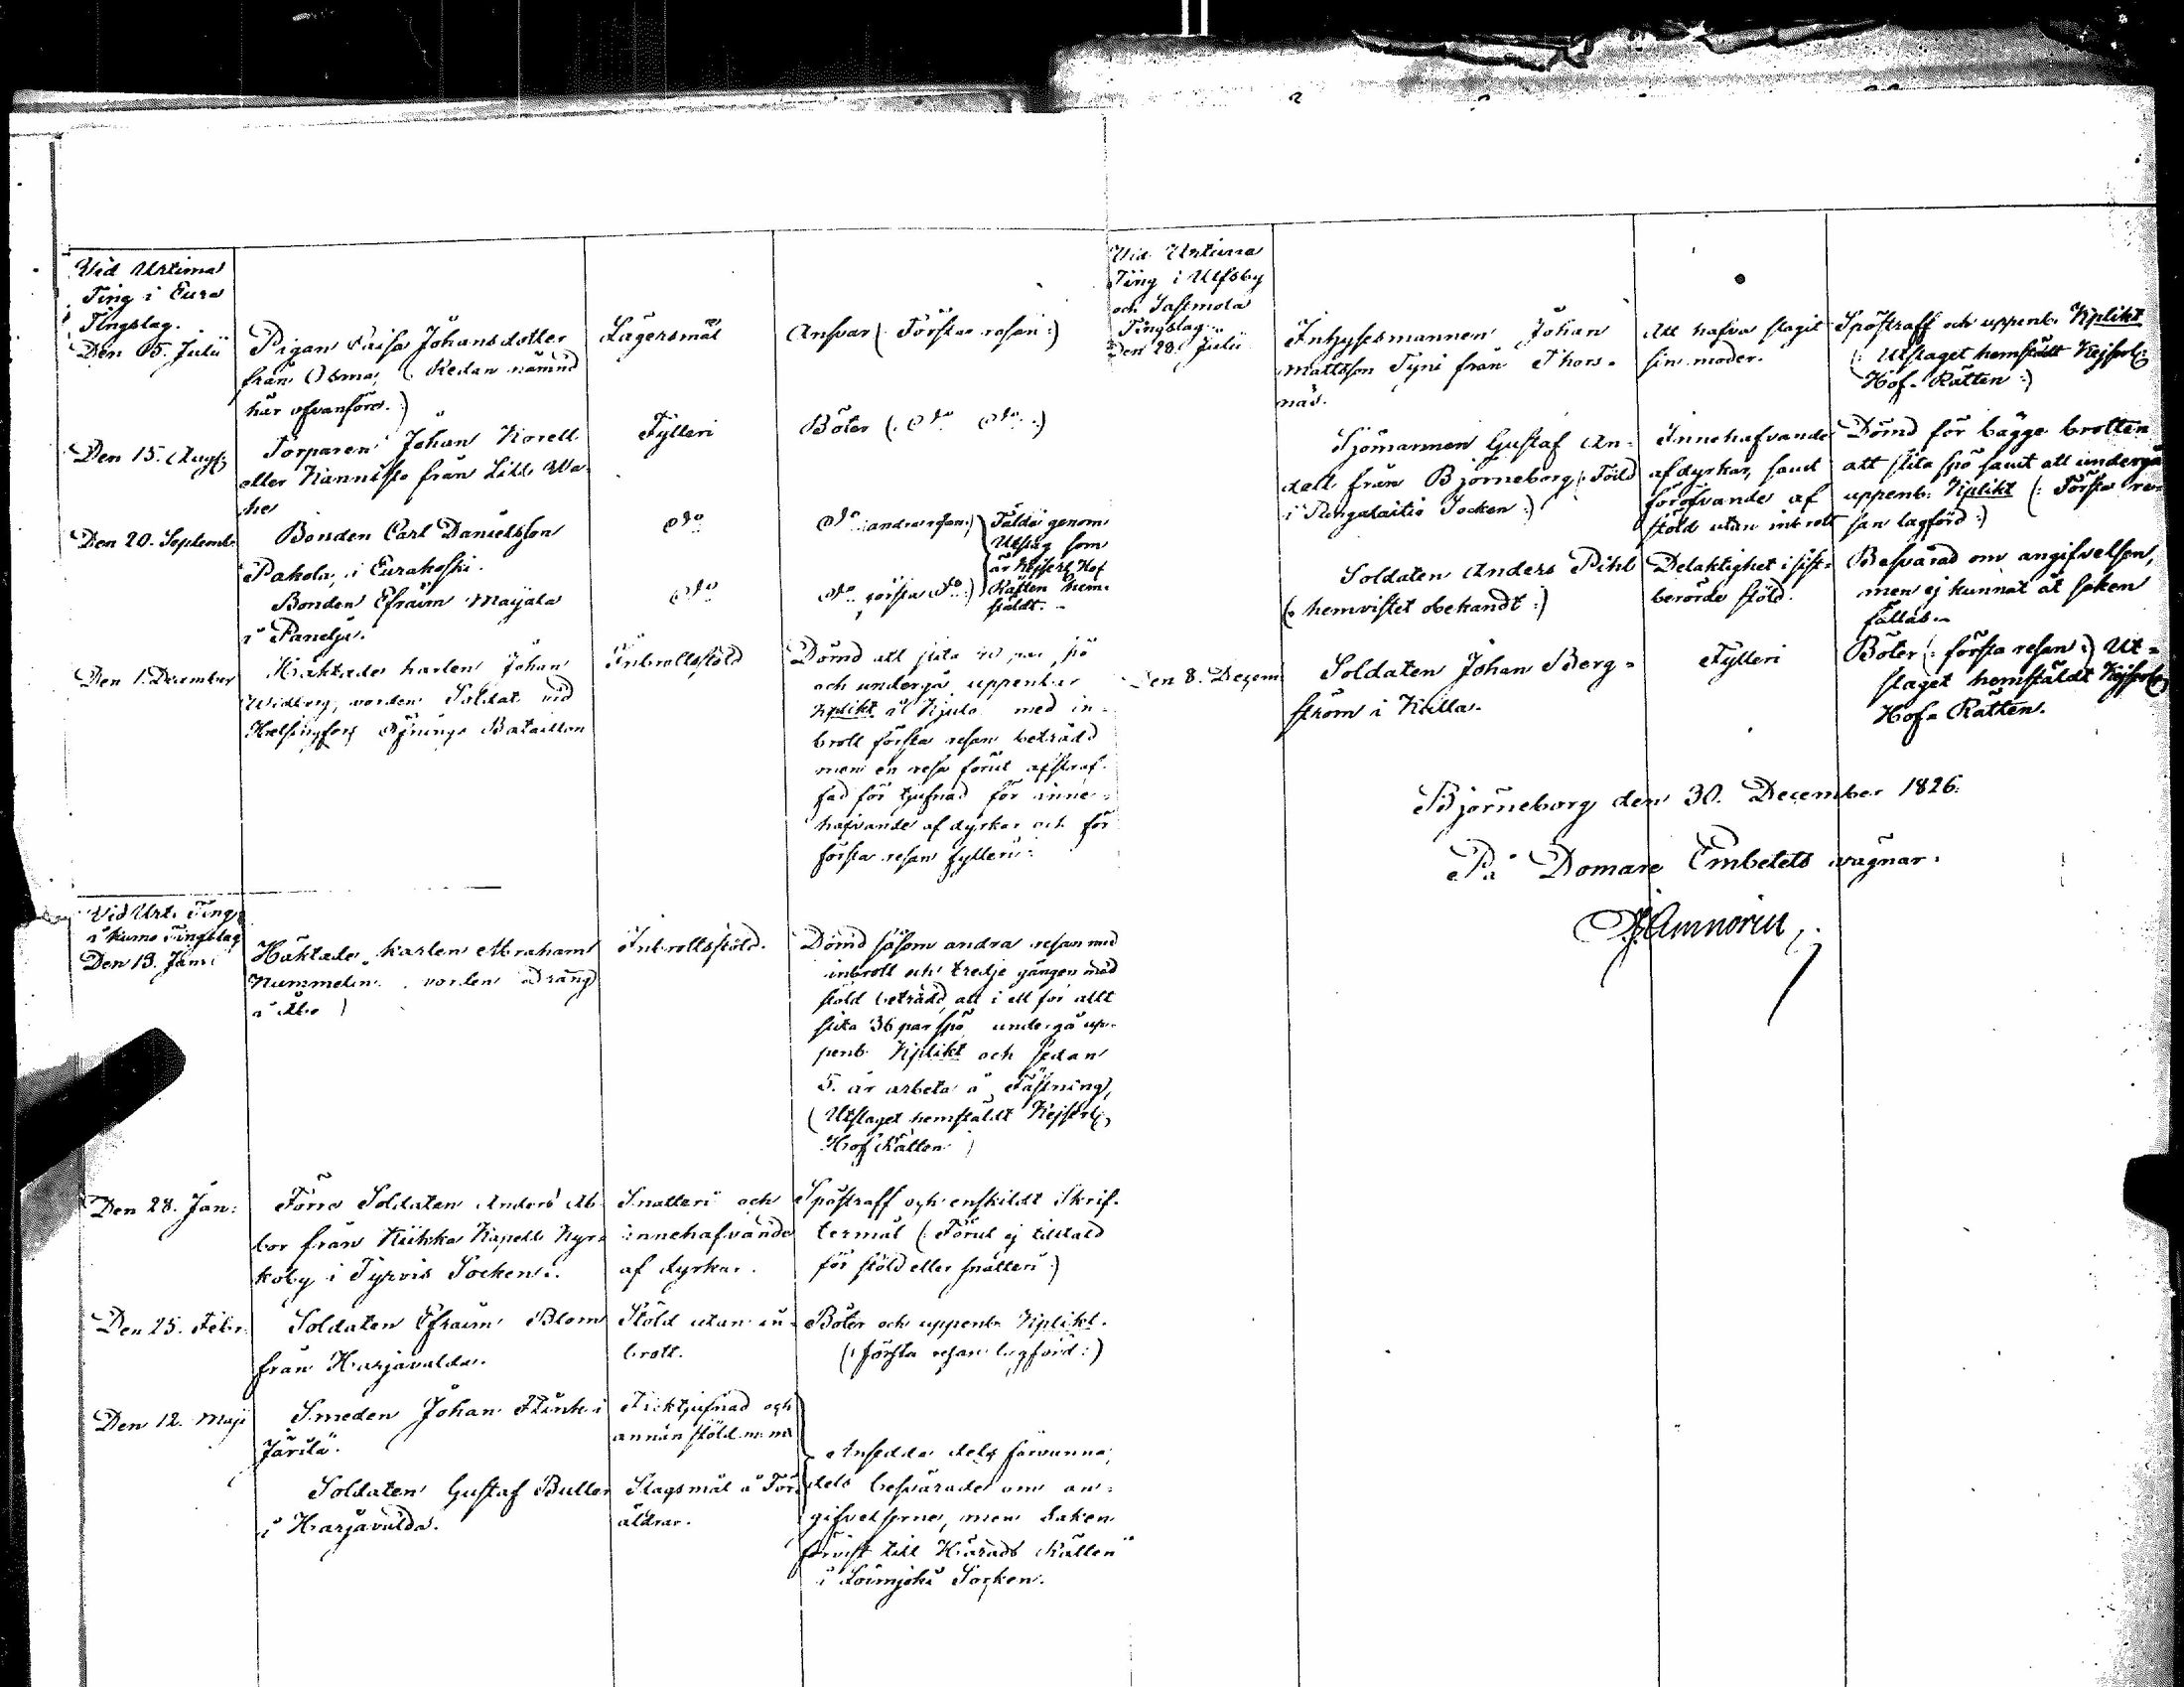 Vid Urtima
Ting i Eura
Tingslag.
Den 5. Julii
Pigan Caisa Johansdotter
från Osma, (Redan nämnd
här ofvanföre.)
Lägersmål
Ansvar (Första resan:)
Den 15. Aug:
Torparen Johan Korell
eller Kannisto från Lill
Fylleri
Böter (: do do :)
Den 20. Septemb:
Bonden Carl Danielsson
Pakola, i Eurakoski.
do
do andra resan:)
Fälde genom
Utslag som
är Kejserl. Hof
Rätten hem-
stäldt.
Bonden Efraim Maijala
i Panelja.
do
do första do:)
Den 1. December
Häktade karlen Johan
Widberg, vorden Soldat vid
Helsingfors Öfnings Bataillon
Inbrottsstöld
Dömd att slita 40 par spö
och undergå uppenbar
Kplikt åt Kjulo med in-
brott första resan beträdd
men en resa förut afstraf-
fad för tjufnad för inne-
hafvande af dyrkar och för
första resan fylleri.
Vid Urt. Ting
i Kumo Tingslag
Den 13. Jan:
Häktade karlen Abraham
Nummelin vorden dräng
i Åbo)
Inbrottsstöld.
Dömd såsom andra resan med
inbrott och tredje gången med
stöld beträdd, att i ett för allt
slita 36 par spö undergå up-
penb. Kplikt och sedan
5. år arbeta å Fästning,
(Utslaget hemstäldt Kejserl:
Hof Rätten)
Den 28. Jan:
Förre Soldaten Anders Ab-
bor från Kiikka Kapell Kyr-
koby i Tyrvis Socken.
Snatteri och
innehafvande
af dyrkar.
Spöstraff och enskildt Skrif-
termål (: Förut ej tilltald
för stöld eller snatteri)
Den 25. Febr.
Soldaten Efraim Blom
från Harjavalda.
Stöld utan in-
brott.
Böter och uppenb. Kplikt.
(: första resan lagförd:)
Den 12. Maji
Smeden Johan Flink i
Järilä.
Ficktjufnad och
annan stöld m. m.
Soldaten Gustaf Buller
i Harjavalda.
Slagsmål å För-
äldrar.
Ansedde dels förvunna,
dels besvärade om an-
gifvelserne, men Saken
förvist till Härads Rätten
i Loimjoki Socken.
Vid Urtima
Ting i Ulfsby
och Sastmola
Tingslag
Den 28. Julii
Inhysesmannen Johan
Mattsson Tyni från Thors-
näs.
Att hafva slagit
sin moder.
Spöstraff och uppenb. Kplikt
(: Utslaget hemstäldt Kejserl:
Hof-Rätten:)
Sjömannen Gustaf An-
dell från Björneborg (: Född
i Pungalaitio Socken:)
Innehafvande
af dyrkar, samt
föröfvande af
stöld utan inbrott
Dömd för bägge brotten
att slita spö samt att undergå
uppenb. Kplikt (: Första re-
san lagförd:)
Soldaten Anders Pihl
(: hemvistet obekandt:)
Delaktighet i sist-
berörde stöld.
Besvärad om angifvelsen,
men ej kunnat åt saken
fällas.
Den 8. Decem:
Soldaten Johan Berg-
ström i Kulla.
Fylleri
Böter (: första resan:) Ut-
slaget hemstäldt Kejserl:
Hof-Rätten.
Björneborg den 30. December 1826.
På Domare Embetets vägnar.